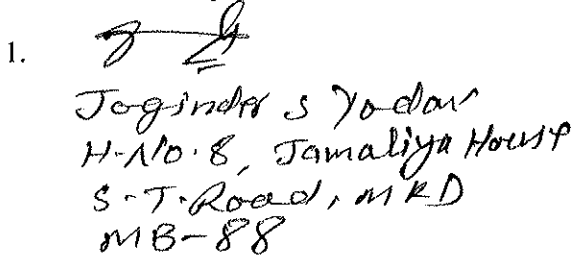 1.
Joginder S Yadav
H.No.8, Jamaliya House
S.T.Road, MKD
MB-88